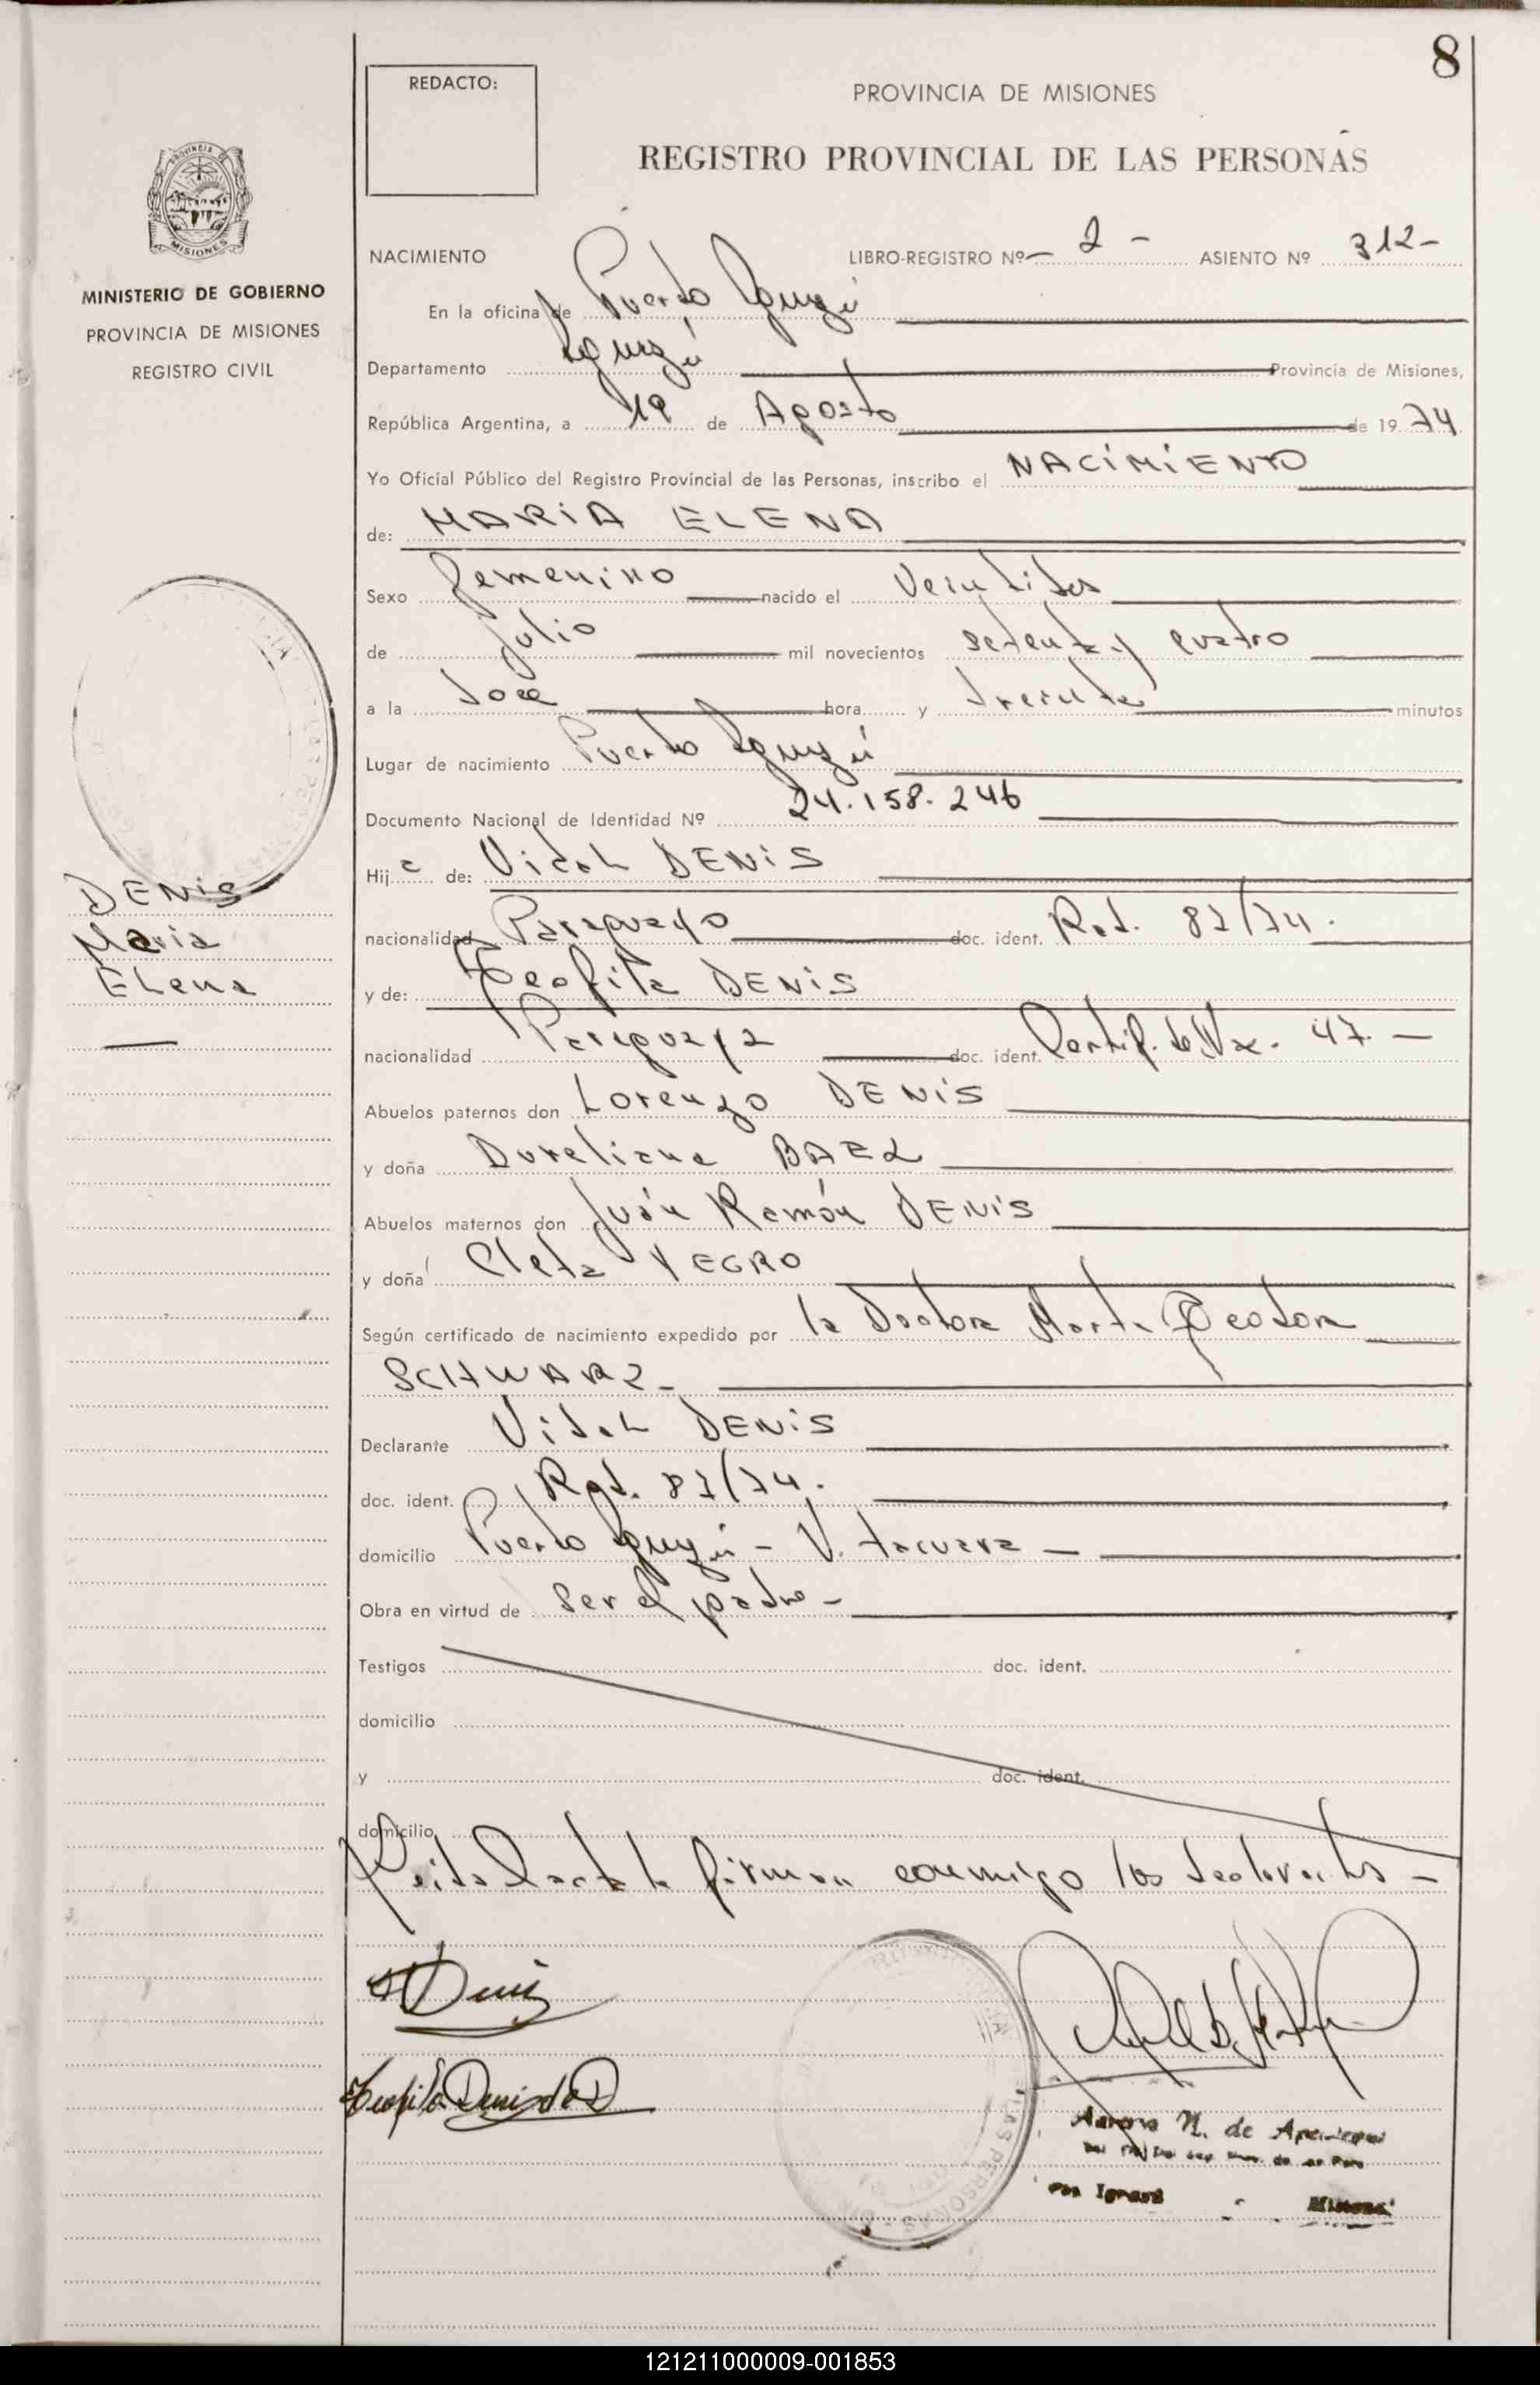 8
REDACTO:
PROVINCIA DE MISIONES
REGISTRO PROVINCIAL DE LAS PERSONAS
MISIONES
MINISTERIO DE GOBIERNO
PROVINCIA DE MISIONES
REGISTRO CIVIL
NACIMIENTO LIBRO-REGISTRO Nº 2 - ASIENTO Nº 312-
En la oficina de Puerto Iguazú
Departamento Iguazú Provincia de Misiones,
República Argentina, a 19 de Agosto de 19 74
Yo Oficial Público del Registro Provincial de las Personas, inscribo el NACIMIENTO
de: MARIA ELENA
Sexo femenino nacido el Veintidos
de Julio mil novecientos setenta y cuatro
a la doce hora y treinta minutos
Lugar de nacimiento Puerto Iguazú
Documento Nacional de Identidad Nº 24.158.246
Hij a de: Vidal DENIS
DENIS
Maria
Elena
nacionalidad Paraguayo doc. ident. 
y de: Teofila DENIS
nacionalidad Paraguaya doc. ident. Certif. de 47. -
Abuelos paternos don Lorenzo DENIS
y doña Aureliana BAEZ
Abuelos maternos don Juán Ramón DENIS
y doña Cleta YEGRO
Según certificado de nacimiento expedido por la Doctora Marta Teodora
SCHWARZ-
Declarante Vidal DENIS
doc. ident.
domicilio Puerto Iguazú - V. tacuara -
Obra en virtud de ser el padre -
Testigos doc. ident.
domicilio
y doc. ident.
domicilio
Leida el acta la firman conmigo los declarantes -
Denis
Teofila Denis de D
N. de
121211000009-001853